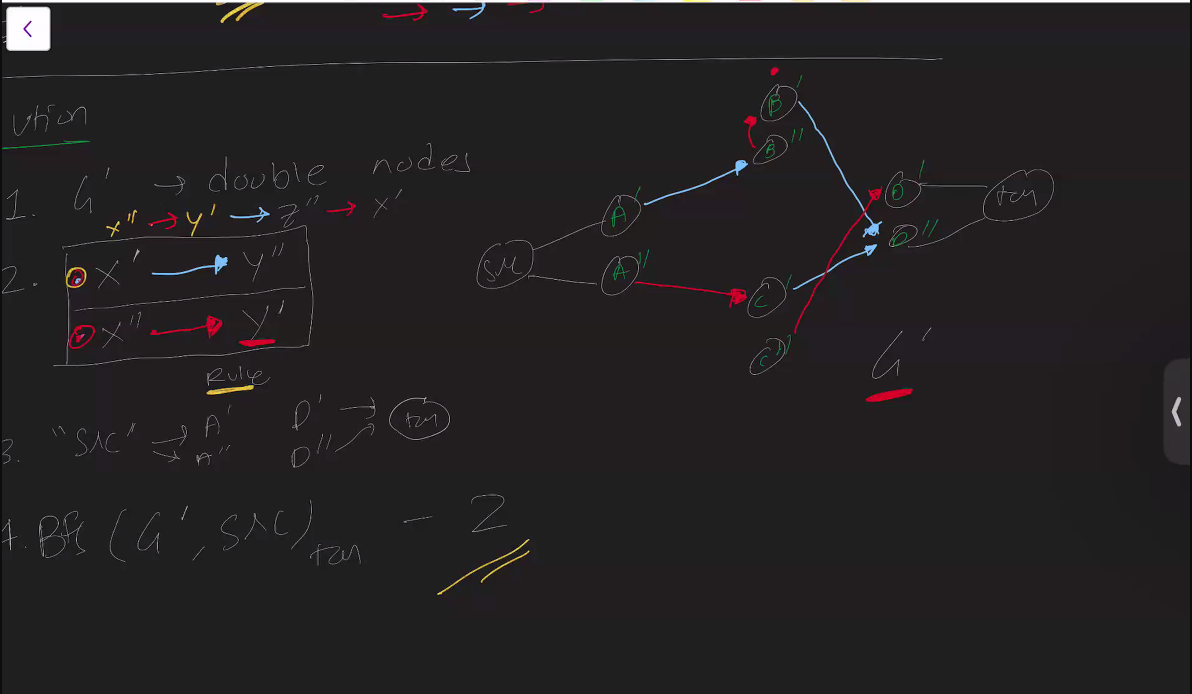 ution
1. G' → double nodes
x'' → y' → z'' → x'
2. X' → Y''
X'' → Y'
Rule
3. "src" → A' D' → tar
→ A'' D''
4. Bfs (G', src) tar - 2
src
A'
A''
B'
B''
C'
C''
D'
D''
tar
G'